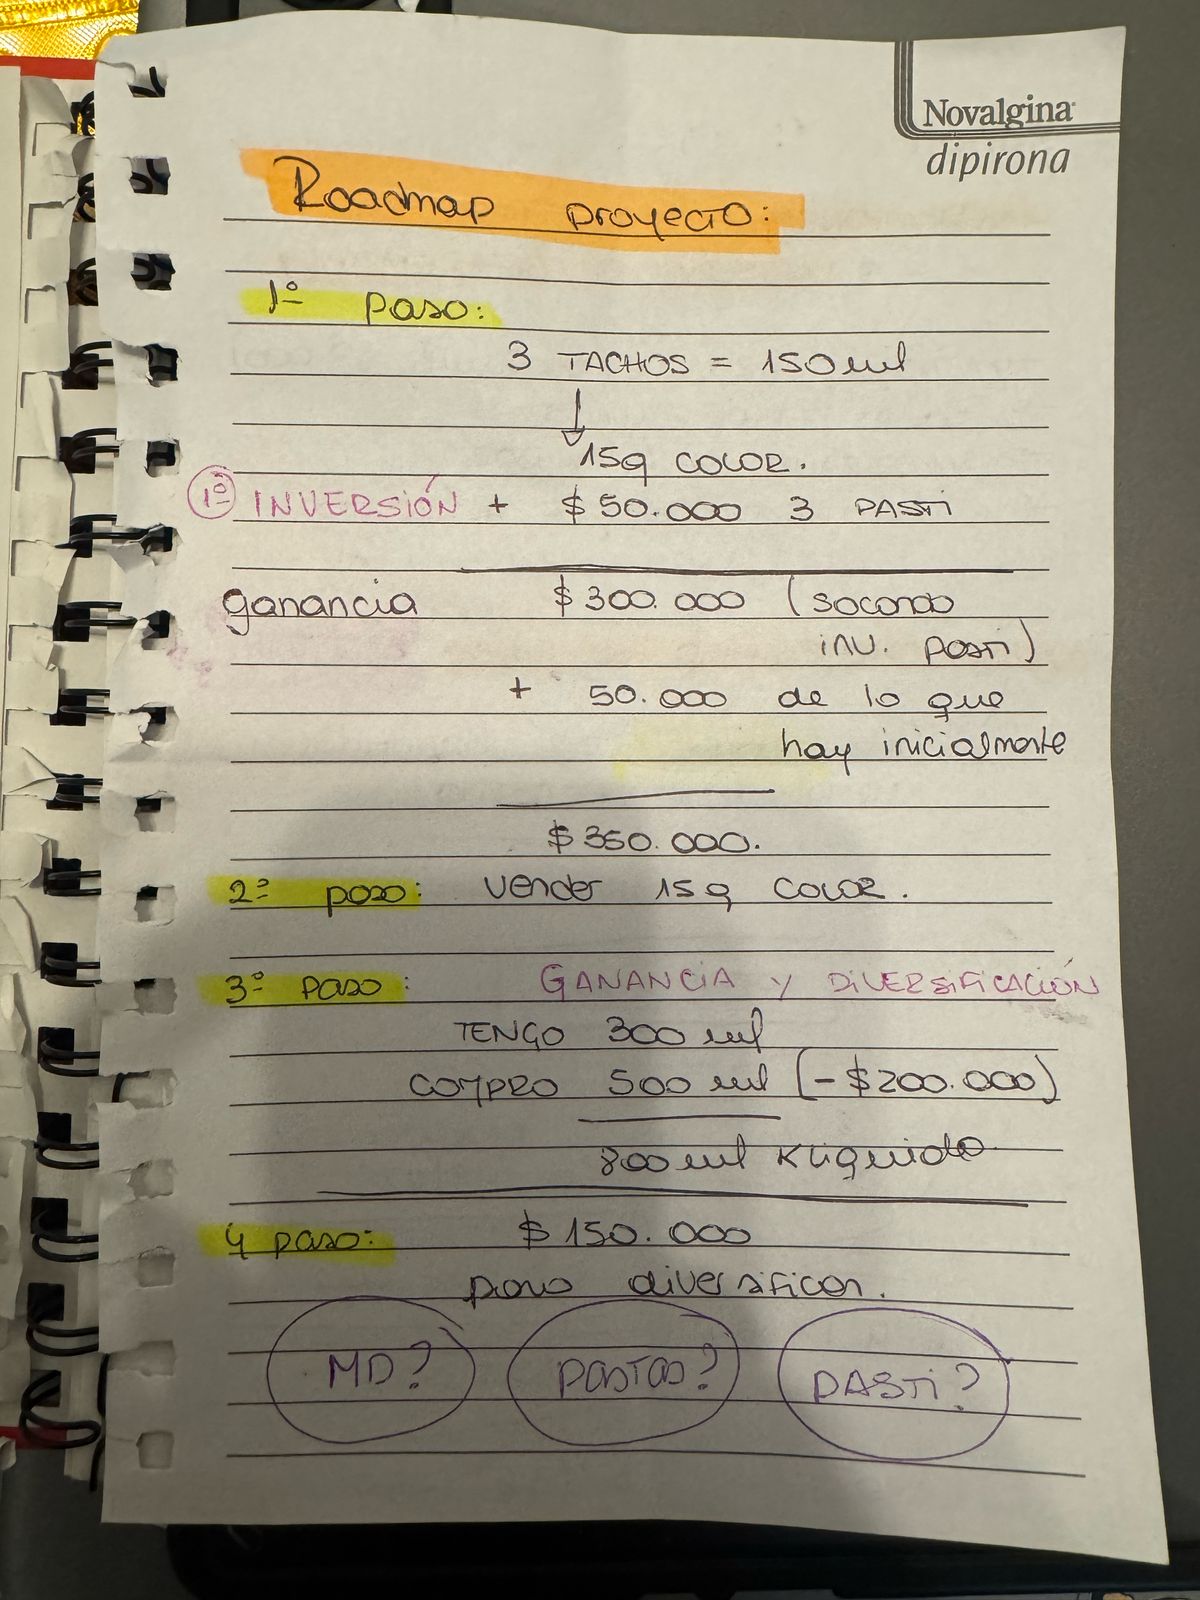 Novalgina
dipirona
Roadmap proyecto:
1º paso:
3 TACHOS = 150 ml
↓
15g COLOR.
1º INVERSIÓN + $50.000 3 PASTI
ganancia $300.000 (sacando
inv. pasti)
+ 50.000 de lo que
hay inicialmente
$350.000.
2º paso: vender 15g COLOR.
3º paso: GANANCIA Y DIVERSIFICACIÓN
TENGO 300 ml
COMPRO 500 ml (-$200.000)
800 ml K liquido
4 paso: $150.000
para diversificar.
MD? PASTAS? PASTI?